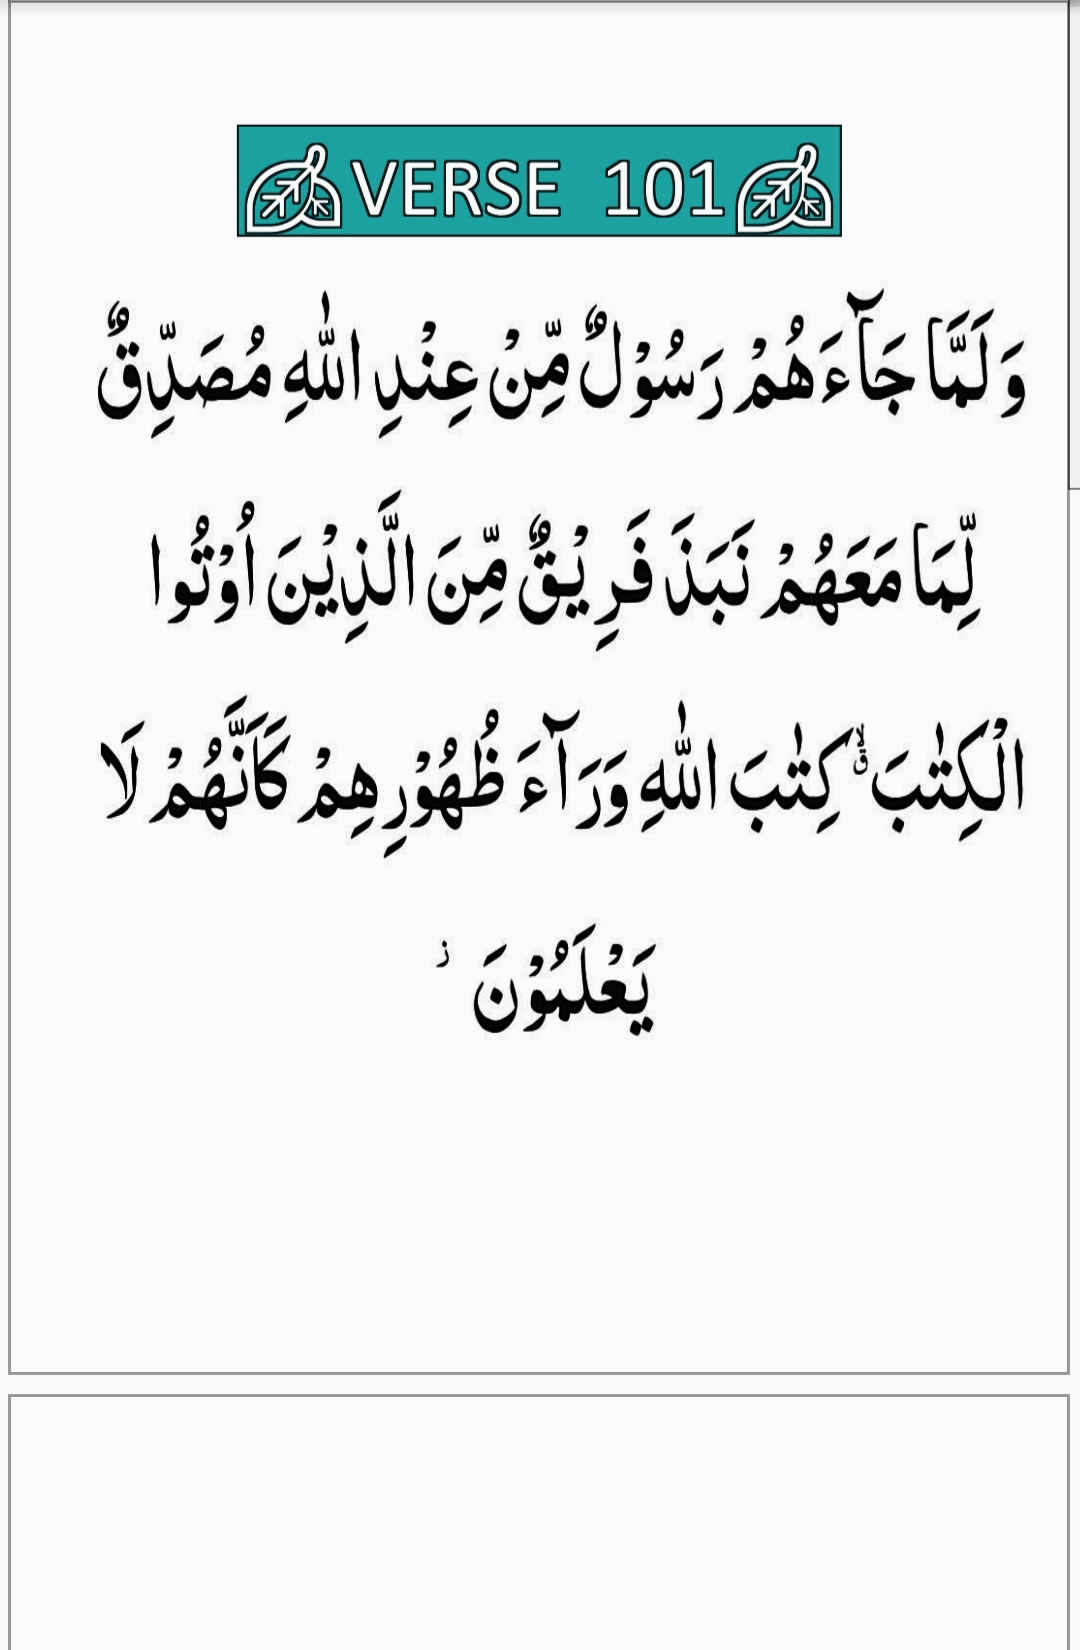 VERSE 101
وَلَمَّا جَآءَهُمْ رَسُوْلٌ مِّنْ عِنْدِ اللّٰهِ مُصَدِّقٌ
لِّمَا مَعَهُمْ نَبَذَ فَرِيْقٌ مِّنَ الَّذِيْنَ اُوْتُوا
الْكِتٰبَ ۙۗ كِتٰبَ اللّٰهِ وَرَآءَ ظُهُوْرِهِمْ كَاَنَّهُمْ لَا
يَعْلَمُوْنَ ؗ